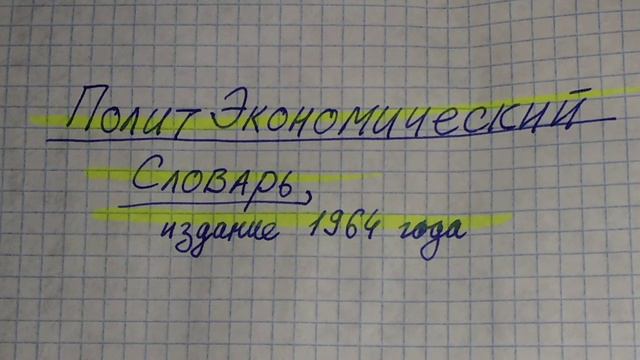 Полит Экономический
Словарь,
издание 1964 года